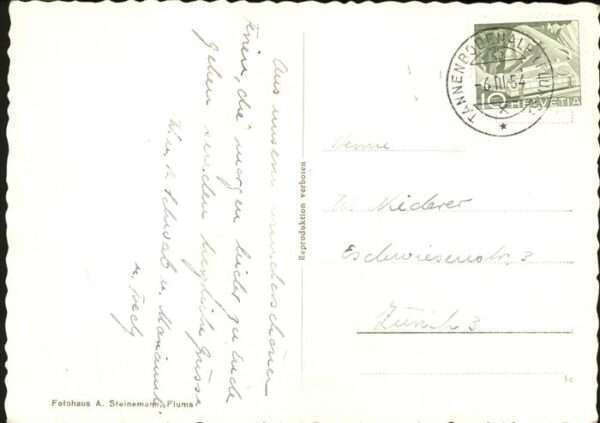 Aus unsern wunderschönen
Ferien, die morgen leider zu Ende
gehen senden herzliche Grüsse
Schwab u. Marianne
u.
Reproduktion verboten
Fotohaus A. Steinemann, Flums
TANNENBODENALP
-6.III.54
10 HELVETIA
W. Niederer
Eschwiesenstr. 3
Zürich 3